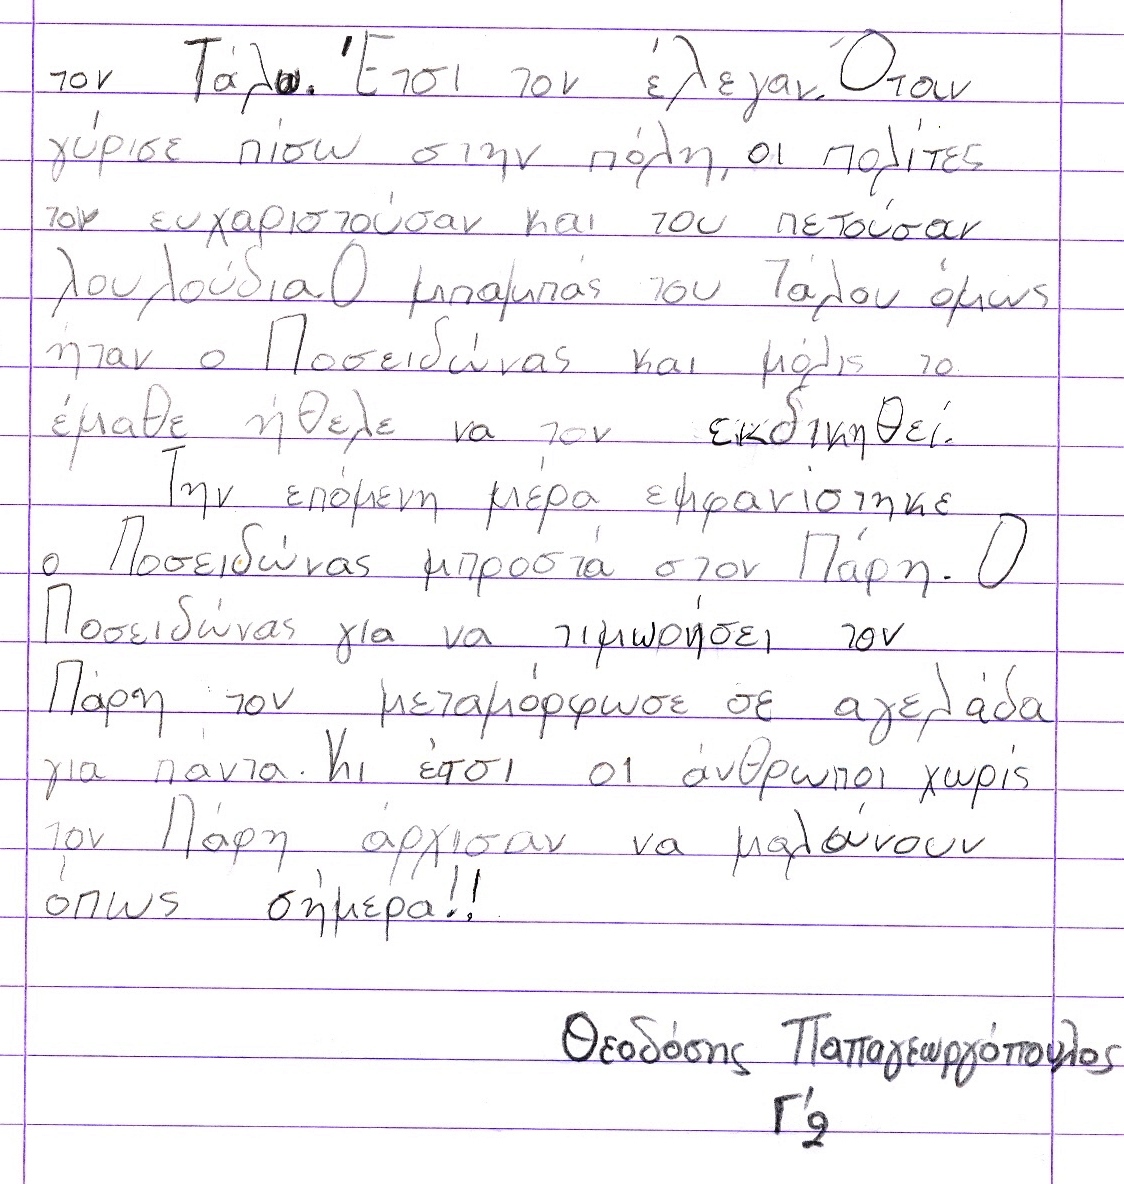 τον Τάλω. Έτσι τον έλεγαν. Όταν
γύρισε πίσω στην πόλη, οι πολίτες
τον ευχαριστούσαν και του πετούσαν
λουλούδια. Ο μπαμπάς του Τάλου όμως
ήταν ο Ποσειδώνας και μόλις το
έμαθε ήθελε να τον εκδικηθεί.
Την επόμενη μέρα εμφανίστηκε
ο Ποσειδώνας μπροστά στον Πάρη. Ο
Ποσειδώνας για να τιμωρήσει τον
Πάρη τον μεταμόρφωσε σε αγελάδα
για πάντα. Κι έτσι οι άνθρωποι χωρίς
τον Πάρη άρχισαν να μαλώνουν
όπως σήμερα!!
Θεοδόσης Παπαγεωργόπουλος
Γ'2